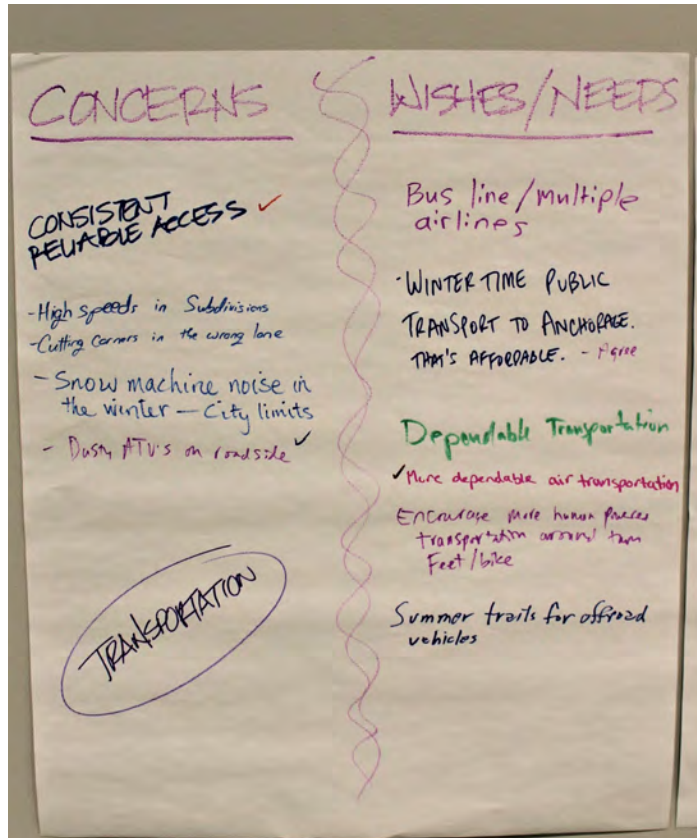 CONCERNS
CONSISTENT
RELIABLE ACCESS ✓
-High speeds in Subdivisions
-Cutting corners in the wrong lane
- Snow machine noise in
the winter — City limits
- Dusty ATV's on roadside ✓
TRANSPORTATION
WISHES/NEEDS
Bus line/multiple
airlines
-WINTER TIME PUBLIC
TRANSPORT TO ANCHORAGE.
THAT'S AFFORDABLE. - Agree
Dependable Transportation
✓More dependable air transportation
Encourage more human
transportation around town
Feet/bike
Summer trails for offroad
vehicles